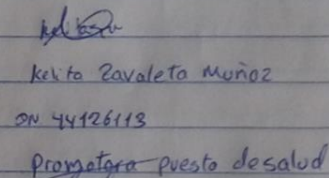 Kelito Zavaleta Muñoz
DN 44126113
promotora puesto de salud